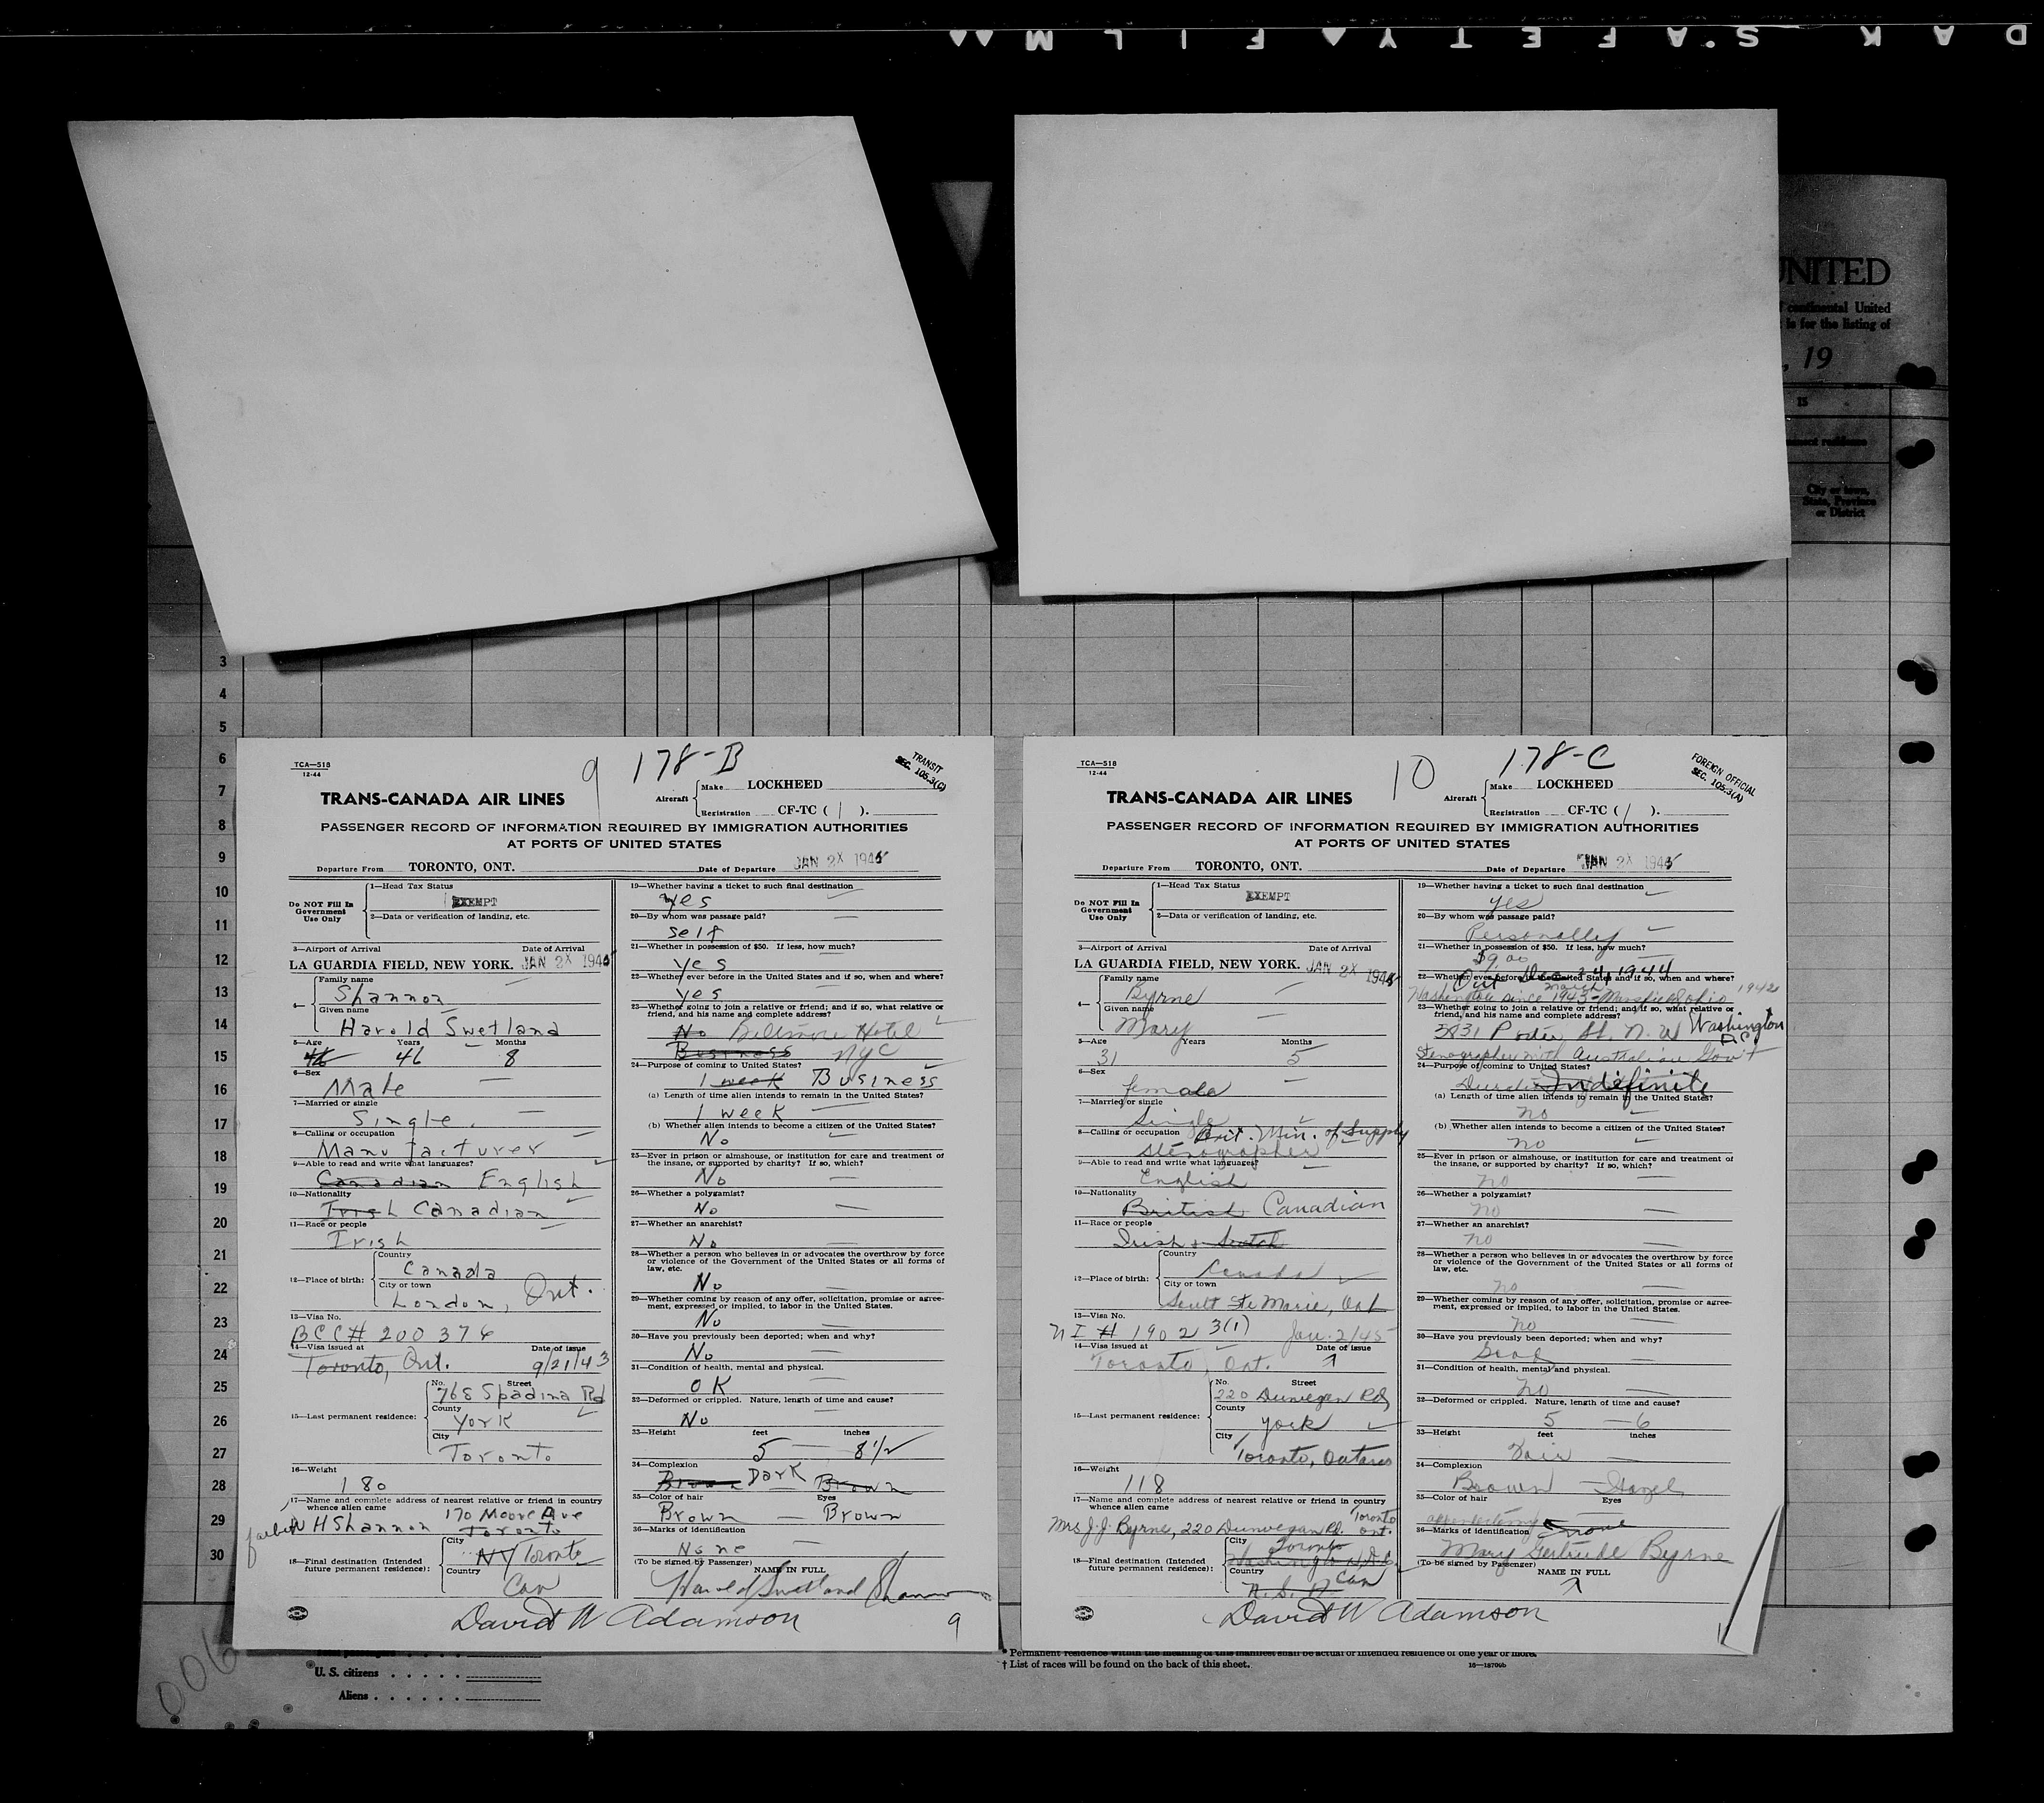 DAK S.AFETY FILM
UNITED
continental United
is for the listing of
, 19
15
City or town,
State, Province
or District
3
4
5
6
7
8
9
10
11
12
13
14
15
16
17
18
19
20
21
22
23
24
25
26
27
28
29
30
TCA—518
12-44
9 178-B
TRANSIT
SEC. 105.3(C)
TRANS-CANADA AIR LINES
Aircraft
Make LOCKHEED
Registration CF-TC ( / ).
PASSENGER RECORD OF INFORMATION REQUIRED BY IMMIGRATION AUTHORITIES
AT PORTS OF UNITED STATES
Departure From TORONTO, ONT. Date of Departure JAN 2X 1945
Do NOT Fill In
Government
Use Only
1—Head Tax Status
EXEMPT
2—Data or verification of landing, etc.
3—Airport of Arrival Date of Arrival
LA GUARDIA FIELD, NEW YORK. JAN 2X 1945
4—
Family name
Shannon
Given name
Harold Swetland
5—Age Years Months
46 46 8
6—Sex
Male
7—Married or single
Single
8—Calling or occupation
Manufacturer
9—Able to read and write what languages?
Canadian English
10—Nationality
Irish Canadian
11—Race or people
Irish
12—Place of birth:
Country
Canada
City or town
London, Ont.
13—Visa No.
BCC# 200376
14—Visa issued at Date of issue
Toronto, Ont. 9/21/43
15—Last permanent residence:
No. Street
768 Spadina Rd
County
York
City
Toronto
16—Weight
180
17—Name and complete address of nearest relative or friend in country
whence alien came
170 Moore Ave
father W H Shannon Toronto
18—Final destination (Intended
future permanent residence):
City
NY Toronto
Country
Can
19—Whether having a ticket to such final destination
Yes
20—By whom was passage paid?
Self
21—Whether in possession of $50. If less, how much?
Yes
22—Whether ever before in the United States and if so, when and where?
Yes
23—Whether going to join a relative or friend; and if so, what relative or
friend, and his name and complete address?
No Biltmore Hotel
Business NYC
24—Purpose of coming to United States?
1 week Business
(a) Length of time alien intends to remain in the United States?
1 week
(b) Whether alien intends to become a citizen of the United States?
No
25—Ever in prison or almshouse, or institution for care and treatment of
the insane, or supported by charity? If so, which?
No
26—Whether a polygamist?
No
27—Whether an anarchist?
No
28—Whether a person who believes in or advocates the overthrow by force
or violence of the Government of the United States or all forms of
law, etc.
No
29—Whether coming by reason of any offer, solicitation, promise or agree-
ment, expressed or implied, to labor in the United States.
No
30—Have you previously been deported; when and why?
No
31—Condition of health, mental and physical.
OK
32—Deformed or crippled. Nature, length of time and cause?
No
33—Height feet inches
5 — 8 1/2
34—Complexion
Brown Dark Brown
35—Color of hair Eyes
Brown — Brown
36—Marks of identification
None
(To be signed by Passenger) NAME IN FULL
Harold Swetland Shannon
David W Adamson
9
TCA—518
12-44
10 178-C
FOREIGN OFFICIAL
SEC. 105.3(A)
TRANS-CANADA AIR LINES
Aircraft
Make LOCKHEED
Registration CF-TC ( / ).
PASSENGER RECORD OF INFORMATION REQUIRED BY IMMIGRATION AUTHORITIES
AT PORTS OF UNITED STATES
Departure From TORONTO, ONT. Date of Departure JAN 2X 1945
Do NOT Fill In
Government
Use Only
1—Head Tax Status
EXEMPT
2—Data or verification of landing, etc.
3—Airport of Arrival Date of Arrival
LA GUARDIA FIELD, NEW YORK. JAN 2X 1945
4—
Family name
Byrne
Given name
Mary
5—Age Years Months
31 5
6—Sex
female
7—Married or single
Single
8—Calling or occupation Brit. Min. of Supply
Stenographer
9—Able to read and write what languages?
English
10—Nationality
British Canadian
11—Race or people
Irish & Scotch
12—Place of birth:
Country
Canada
City or town
Sault Ste Marie, Ont
13—Visa No.
NI # 1902 3(1) Jan. 2/45
14—Visa issued at Date of issue
Toronto, Ont.
15—Last permanent residence:
No. Street
220 Dunvegan Rd
County
York
City
Toronto, Ontario
16—Weight
118
17—Name and complete address of nearest relative or friend in country
whence alien came
Mrs. J.J. Byrne, 220 Dunvegan Rd. Toronto Ont.
18—Final destination (Intended
future permanent residence):
City
Toronto
Washington, D.C.
Country
U.S.A. Can
19—Whether having a ticket to such final destination
Yes
20—By whom was passage paid?
Personally
21—Whether in possession of $50. If less, how much?
$9.00
Out Dec 24, 1944
22—Whether ever before in the United States and if so, when and where?
Washington since March 1943 - Mansfield Ohio 1942
23—Whether going to join a relative or friend; and if so, what relative or
friend, and his name and complete address?
3831 Porter St. N.W Washington D.C.
Stenographer with Australian Gov't
24—Purpose of coming to United States?
Indefinite
(a) Length of time alien intends to remain in the United States?
no
(b) Whether alien intends to become a citizen of the United States?
no
25—Ever in prison or almshouse, or institution for care and treatment of
the insane, or supported by charity? If so, which?
no
26—Whether a polygamist?
no
27—Whether an anarchist?
no
28—Whether a person who believes in or advocates the overthrow by force
or violence of the Government of the United States or all forms of
law, etc.
no
29—Whether coming by reason of any offer, solicitation, promise or agree-
ment, expressed or implied, to labor in the United States.
no
30—Have you previously been deported; when and why?
Good
31—Condition of health, mental and physical.
no
32—Deformed or crippled. Nature, length of time and cause?
5 — 6
33—Height feet inches
Fair
34—Complexion
Brown — Hazel
35—Color of hair Eyes
appendectomy none
36—Marks of identification
Mary Gertrude Byrne
(To be signed by Passenger)
NAME IN FULL
David W Adamson
006
U. S. citizens
Aliens
* Permanent residence within the meaning of this manifest shall be actual or intended residence of one year or more.
† List of races will be found on the back of this sheet.
16—18700b